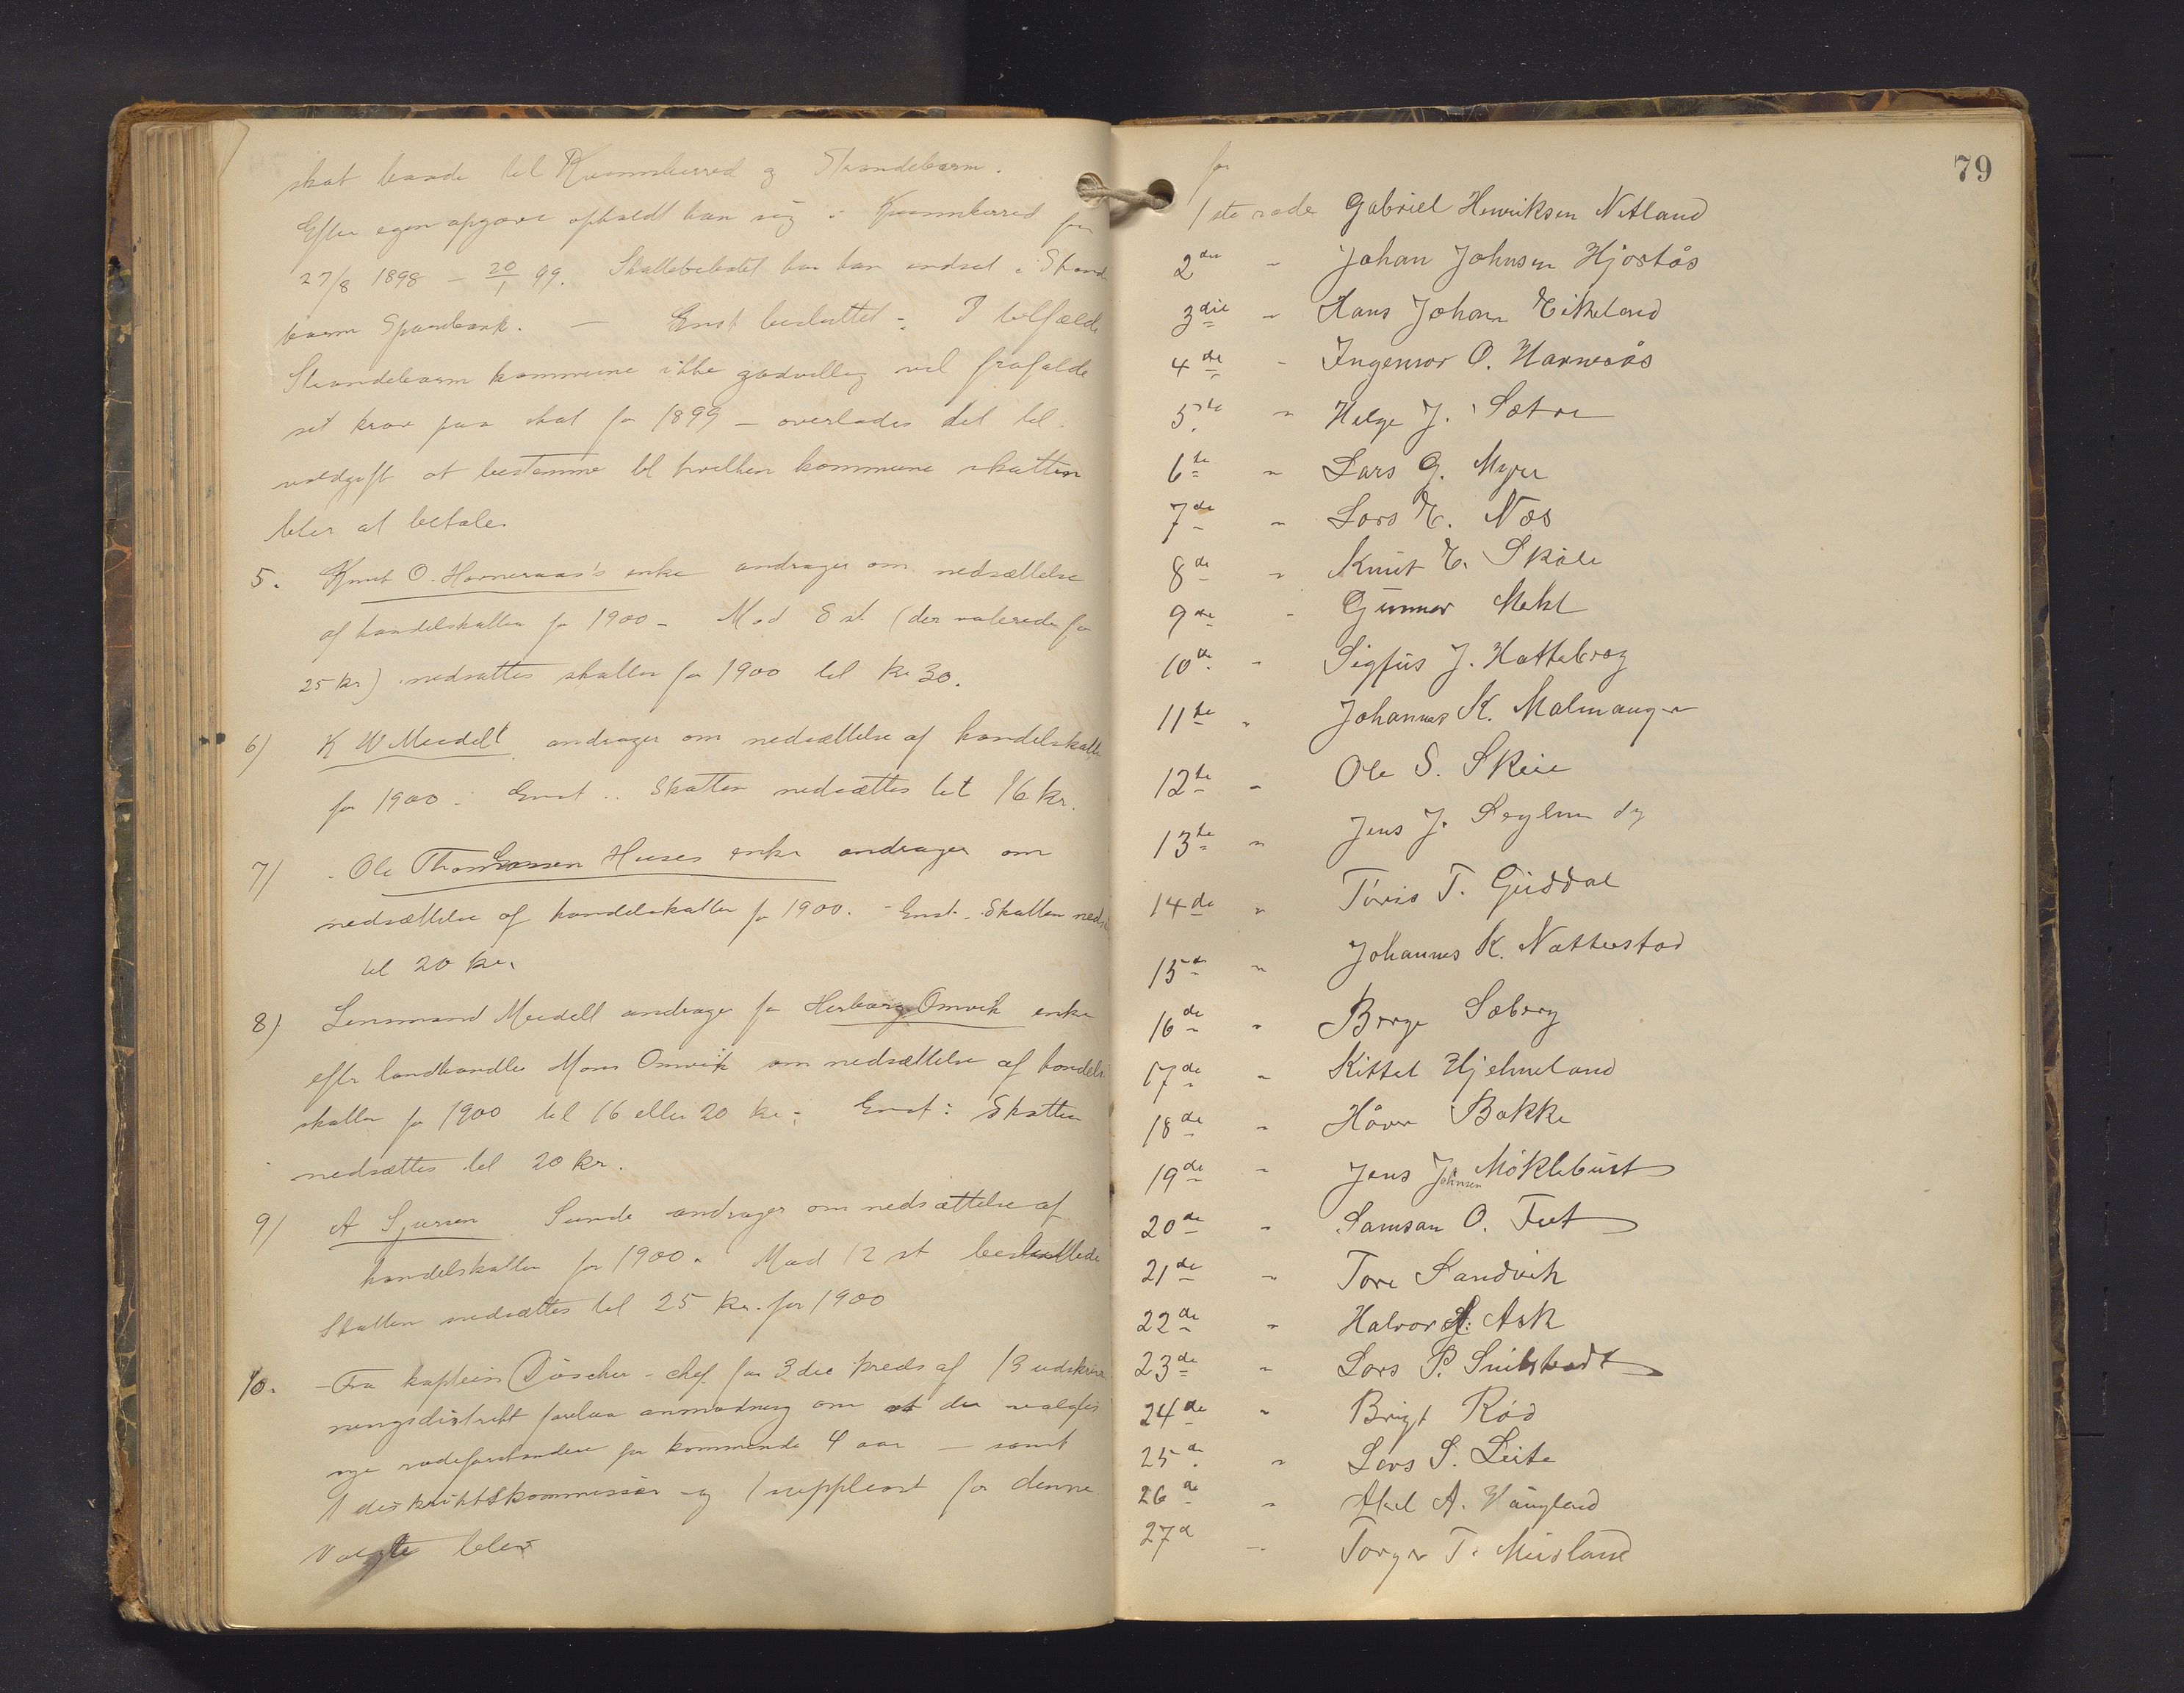 skat baade til Kvamsherred og Strandebarm.
Efter egen opgave opholdt han sig i Kvamsherred fra
27/8 1898 – 20/1 99. Skattebeløbet har han indsat i Strande
barm Sparebank. — Enst besluttet: I tilfælde
Strandebarm kommune ikke godvillig vil frafalde
sit krav paa skat for 1899 – overlades det til
voldgift at bestemme til hvilken kommune skatten
bler at betale.
5. Knut O. Harneraas's enke andrager om nedsættelse
af handelskatten for 1900 – Mod 8 st (der voterede for
25 kr) nedsættes skatten for 1900 til kr 30.
6) K W Meidell andrager om nedsættelse af handelskatte
for 1900. Enst.: Skatten nedsættes til 16 kr.
7) Ole Thomassen Huses enke andrager om
nedsættelse af handelskatten for 1900. – Enst. Skatten neds
til 20 kr.
8) Lensmand Meidell andrager for Herborg Omvik enke
efter landhandler Mons Omvik om nedsættelse af handels
skatten for 1900 til 16 eller 20 kr. Enst: Skatten
nedsættes til 20 kr.
9) A Sjursen Sunde andrager om nedsættelse af
handelskatten for 1900. Mod 12 st besluttede
Skatten nedsættes til 25 kr. for 1900
10. Fra kaptein Düscher – chef for 3die kreds af 13 udskriv
ningsdistrikt forelaa anmodning om at der valgtes
nye rodeforstandere for kommende 4 aar – samt
1 distriktskommissær og 1 suppleant for denne
Valgte blev
79
for
1ste rode Gabriel Henriksen Netland
2den " Johan Johnsen Hjortås
3die " Hans Johan Eikeland
4de " Ingemor O. Harnerås
5te " Helge J. Sætre
6te " Lars G. Myre
7de " Lars E. Næs
8de " Knut E. Skåle
9de " Gunnar Mehl
10de " Sigfus J. Hatteberg
11te " Johannes K. Malmanger
12te " Ole S. Skeie
13te " Jens J.
14de " Tóris T. Guddal
15de " Johannes K. Natterstad
16de " Børge Sæberg
17de " Kittel Hjelmeland
18de " Håvar Bakke
19de " Jens Johnsen Møklebust
20de " Samson O. Fet
21de " Tore Sandvik
22de " Halvor H. Ask
23de " Lars P. Snilstveidt
24de " Brigt Rød
25de " Lars S. Leite
26de " Axel A. Haugland
27d " Torger T. Musland